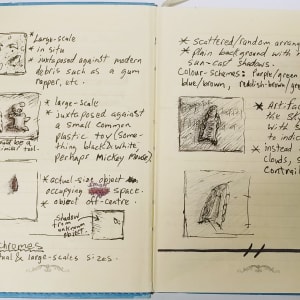 * Large-scale
* in situ
* juxtaposed against modern
debris such as a gum
rapper, etc.
* large-scale
* juxtaposed against
a small common
plastic toy (Some-
thing black & white,
perhaps Mickey Mouse).
* actual-size object
occupying space.
* object off-centre.
Shadow
from
unknown
object.
chromes
tual & large-scales sizes.
* scattered/random arrang
* plain background with n
sun-cast shadows.
Colour-schemes: Purple/green
blue/brown, reddish-brown/gre
* Artifa
the sky
with s
to indic
* Instead
clouds, s
Contrail